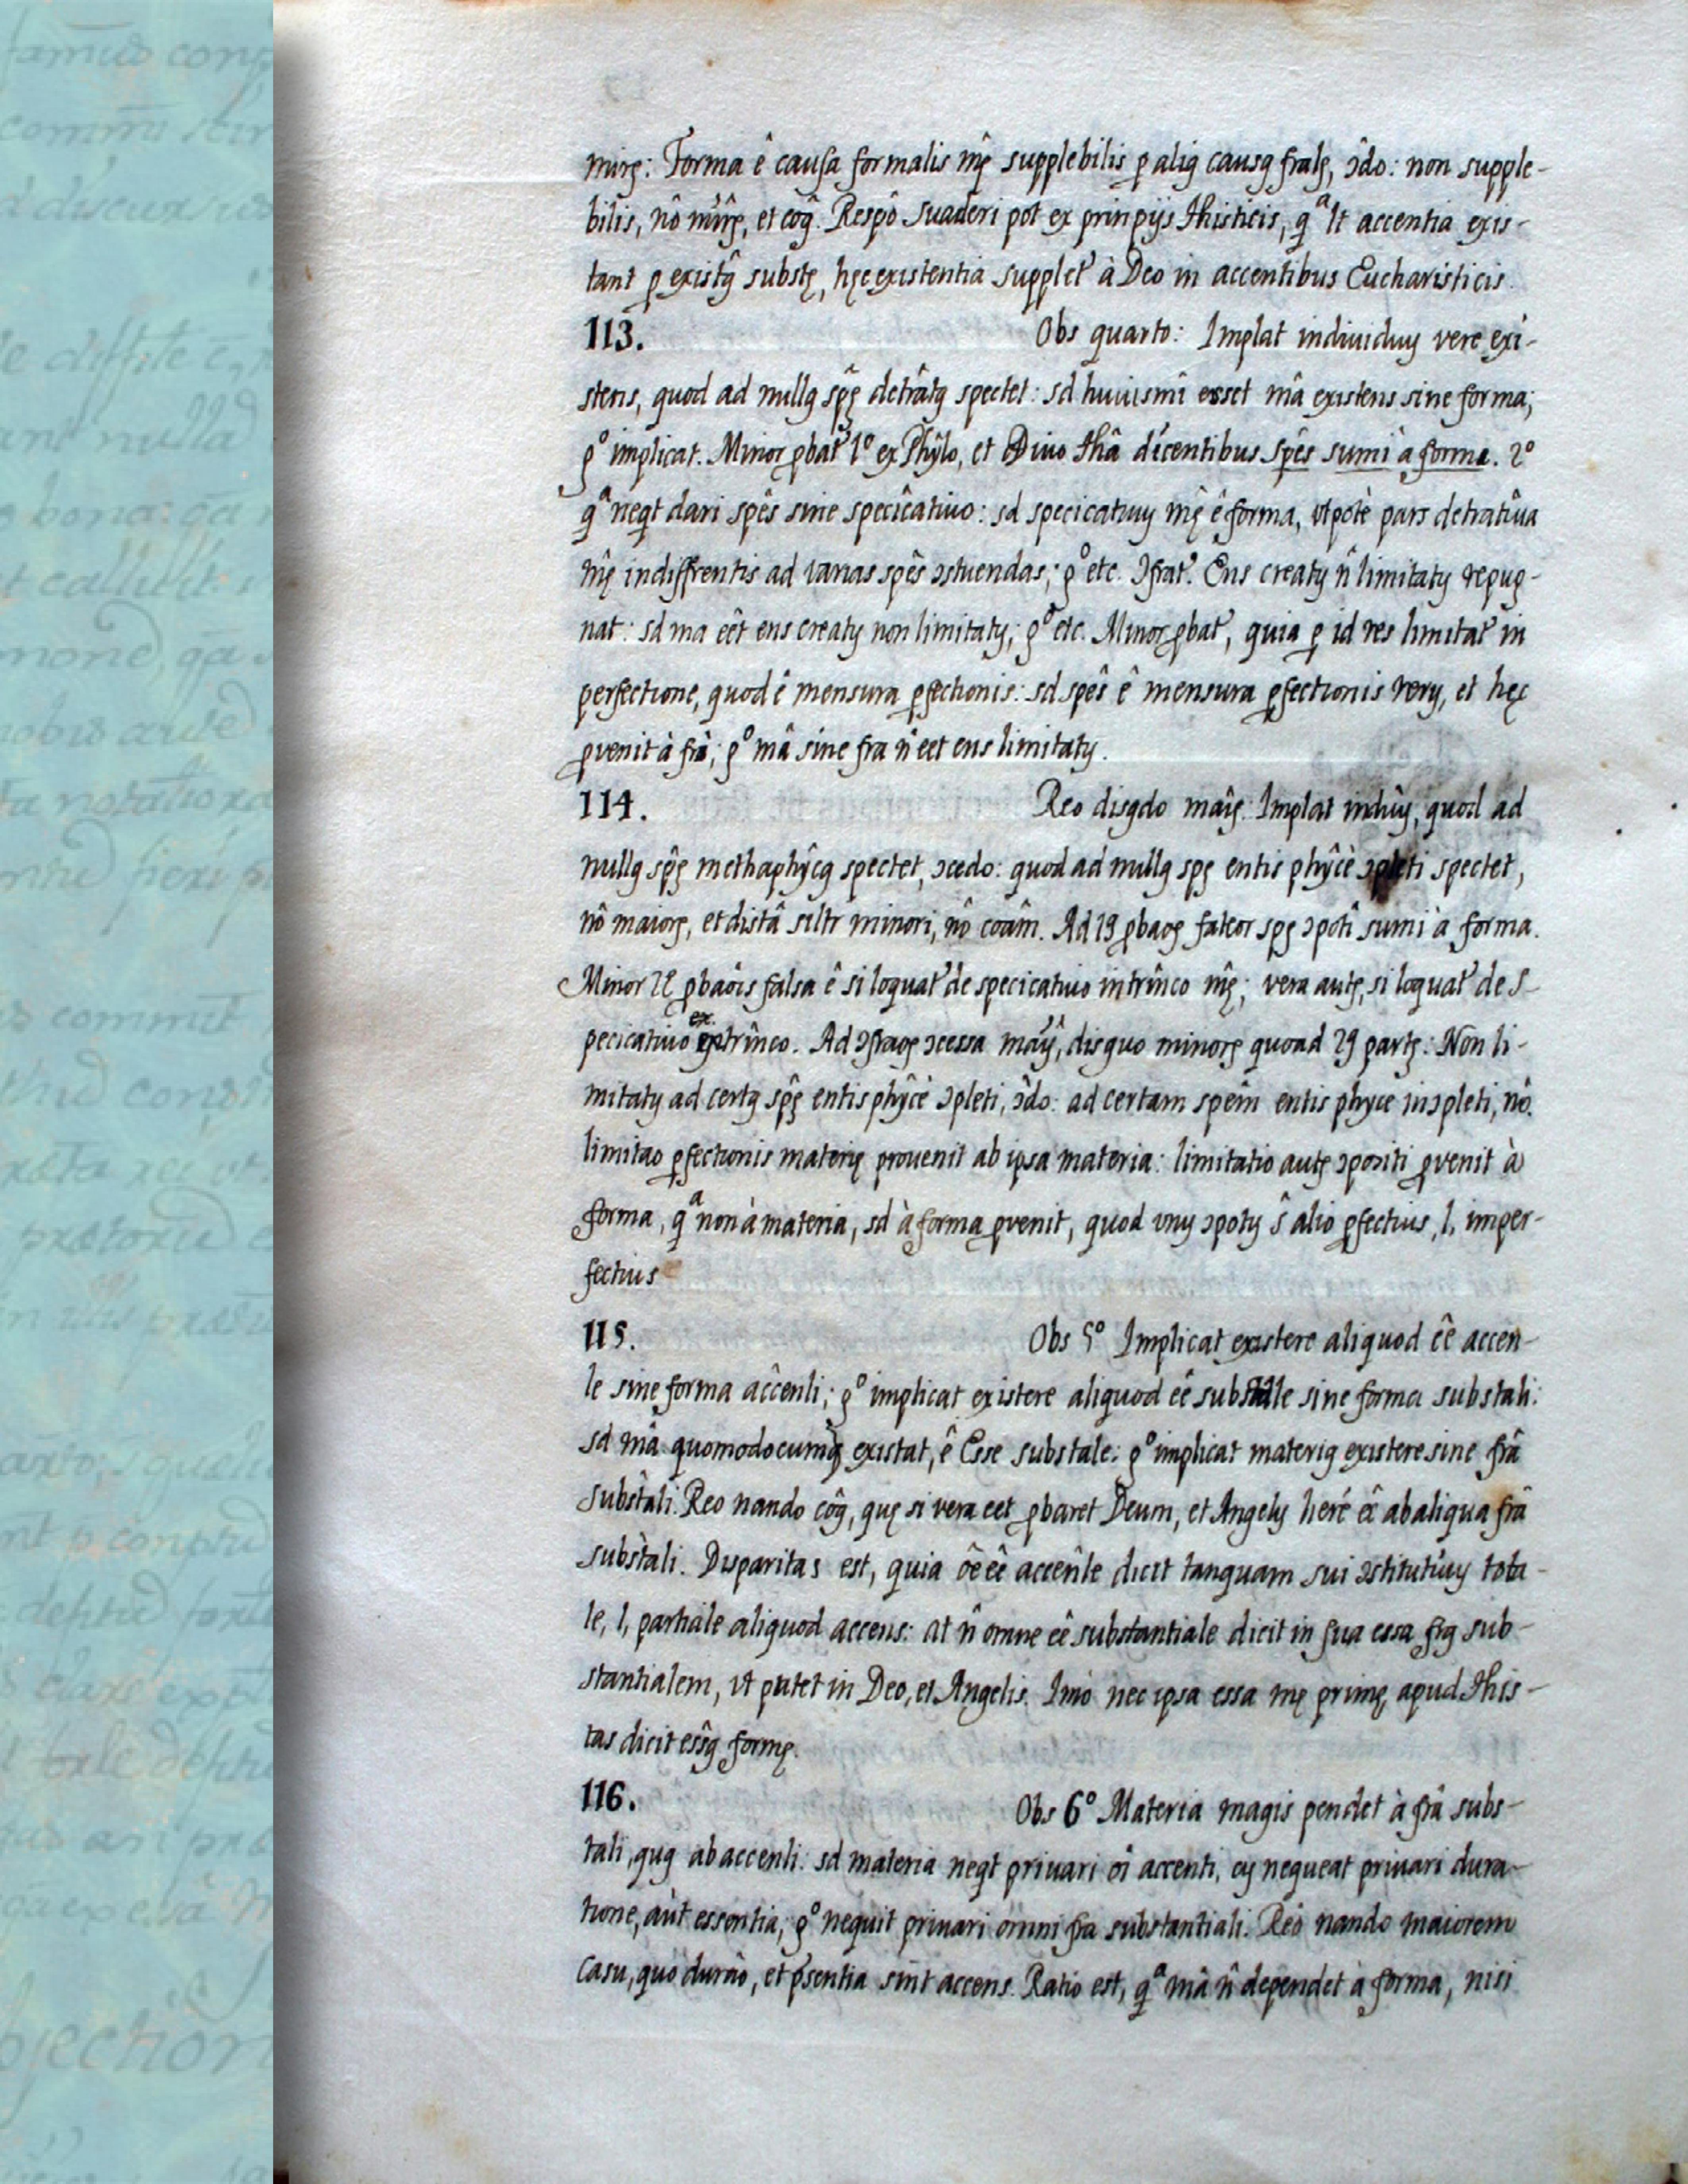 minę: Forma ê causa formalis mę̂ supplebilis ꝑ aliq causą fralę, ɔ̂do: non supple-
bilis, nô mîrę, et coq̂. Respô suaderi pot ex prinpijs thisticis, qª lt accentia exis-
tant ꝑ existq̂ substę, hęc existentia supplet' à Deo in accentibus Eucharisticis.
113. Obs quarto: Implat indiuiduy vere exi-
stens, quod ad nullą spę̂ detrâtą spectet: sd huiusmî esset mâ existens sine forma;
gº implicat. Minor ꝓbat' 1º ex Phŷlo, et Diuo thâ dicentibus spês sumi à forma. 2º
qª neqt dari spês sine specicâtiuo: sd specicatiuuy mę̂ ê forma, vtpotè pars detratîua
mę̂ indiffrentis ad varias spês ɔstuendas; gº etc. ɔfrat'. Ens creaty n̂ limitaty repug-
nat: sd ma eêt ens creaty non limitaty; gº etc. Minor ꝓbat', quia ꝑ id res limitat' in
perfectione, quod ê mensura ꝑfectionis: sd spês ê mensura ꝑfectionis rery, et hęc
ꝓvenit à frâ; gº mâ sine fra n̂ eet ens limitaty.
114. Reo disgdo maîę: Implat indiûy, quod ad
nullą spę̂ methaphŷcą spectet, ɔcedo: quod ad nullą spę entis phŷcè ɔpleti spectet,
nô maiorę, et distâ siltr minori, nô coâm. Ad 1ą ꝓbaoę fateor spę ɔpotî sumi à forma.
Minor 2ę ꝓbaôis falsa ê si loquat' de specicatiuo intrînco mę̂; vera autę, si loquat' de s-
pecicatiuo extrînco. Ad ɔfraoę ɔcessa maîy, disguo minorę quoad 2ą partę: Non li-
mitaty ad certą spę̂ entis phŷcè ɔpleti, ɔ̂do: ad certam speîm entis phyce inɔpleti, nô.
limitao ꝑfectionis materię prouenit ab ipsa materia: limitatio autę ɔpositi ꝓvenit à
forma, qª non à materia, sd à forma ꝓvenit, quod vny ɔpoty ŝ alio ꝑfectius, l, imper-
fectius
115. Obs 5º Implicat existere aliquod êê accen-
le sine forma accênli; gº implicat existere aliquod eê substâle sine forma substali:
sd mâ quomodocumq existat, ê Esse substale: gº implicat materią existere sine frâ
substâli. Reo nando coq̂, quę si vera eet ꝓbaret Deum, et Angely heré eê ab aliqua frâ
substàli. Disparitas est, quia ôe êê accenîle dicit tanquam sui ɔstitutiûy tota-
le, l, partiale aliquod accens: at n̂ omne eê substantiale dicit in sua essa frą sub-
stantialem, vt patet in Deo, et Angelis. Imò nec ipsa essa mę primę apud this-
tas dicit essą̂ formę.
116. Obs 6º Materia magis pendet à frâ subs-
tali, quą ab accenli: sd materia neqt priuari oî accenti, cy nequeat priuari dura-
tione, aût essentia; gº nequit priuari omni fra substantiali. Reò nando maiorem
casu, quo durâo, et ꝓsentia sint accens. Ratio est, qª mâ n̂ dependet à forma, nisi